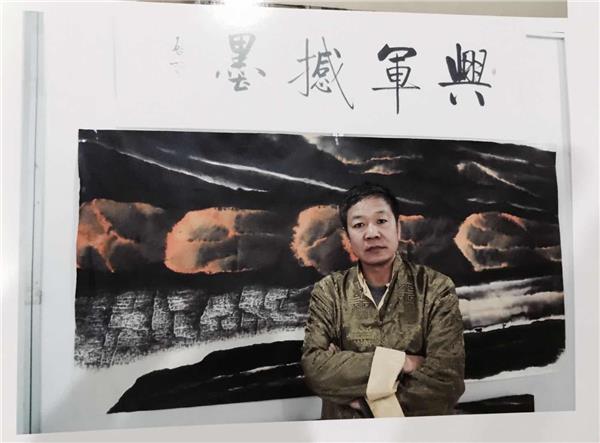 興軍撼墨